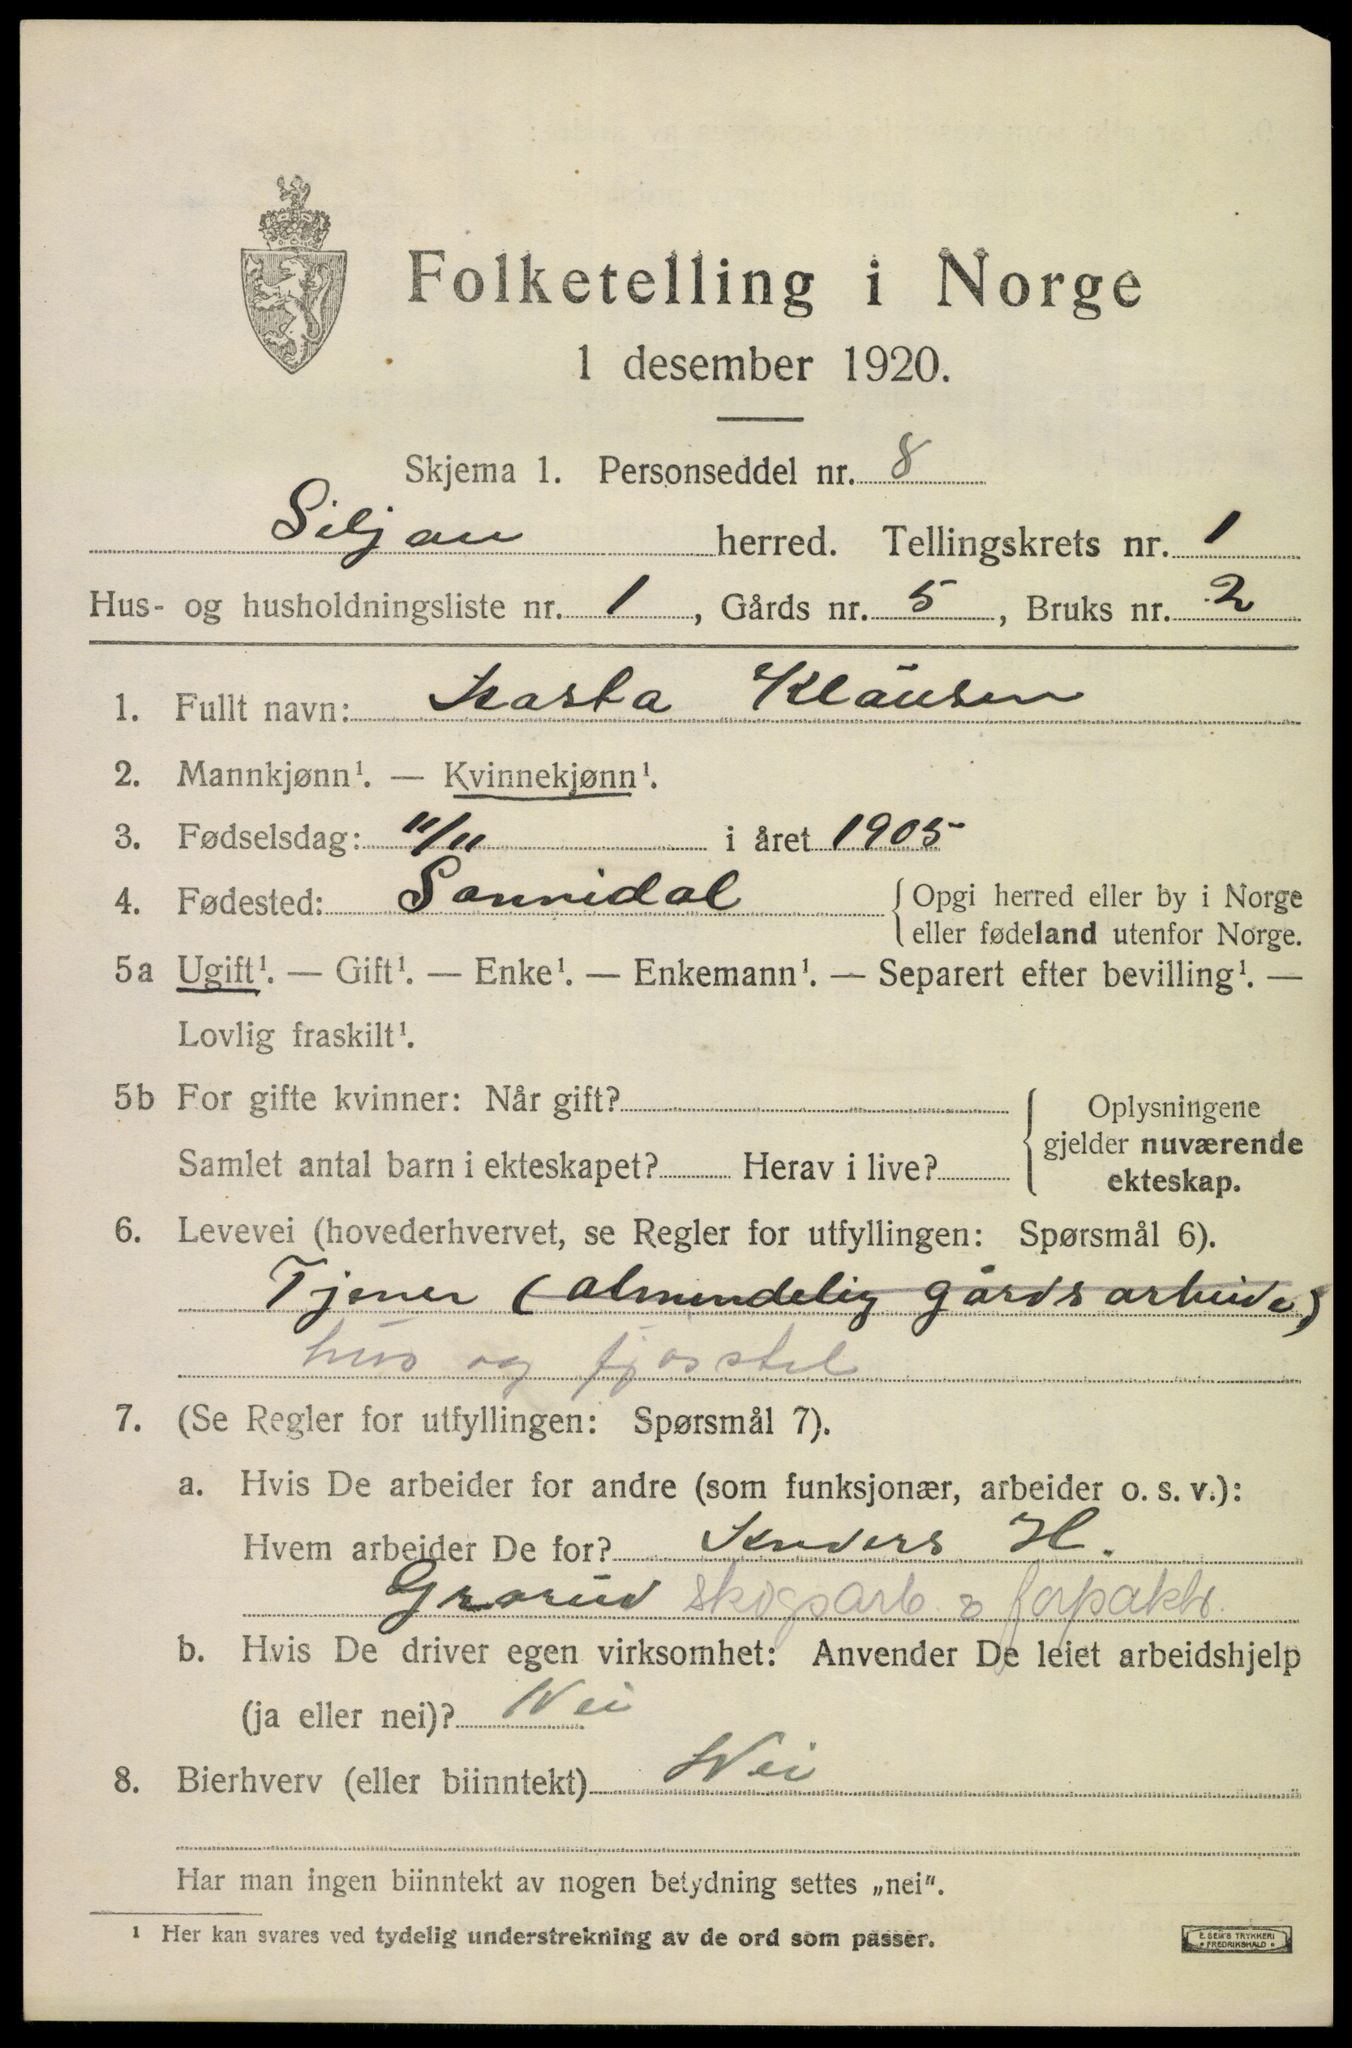 Folketelling i Norge
1 desember 1920.
Skjema 1. Personseddel nr. 8
Siljan herred. Tellingskrets nr. 1
Hus- og husholdningsliste nr. 1, Gårds nr. 5, Bruks nr. 2
1. Fullt navn: Aasta Klausen
2. Mannkjønn¹. — Kvinnekjønn¹.
3. Fødselsdag: 11/11 i året 1905
4. Fødested: Sannidal { Opgi herred eller by i Norge
eller fødeland utenfor Norge.
5a Ugift¹. — Gift¹. — Enke¹. — Enkemann¹. — Separert efter bevilling¹. —
Lovlig fraskilt¹.
5b For gifte kvinner: Når gift? { Oplysningene
gjelder nuværende
Samlet antal barn i ekteskapet? Herav i live?
ekteskap.
6. Levevei (hovederhvervet, se Regler for utfyllingen: Spørsmål 6).
Tjener (almindelig gårdsarbeide)
hus og fjosstel
7. (Se Regler for utfyllingen: Spørsmål 7).
a. Hvis De arbeider for andre (som funksjonær, arbeider o. s. v.):
Hvem arbeider De for? Anders H.
Grorud skogsarb. & forpakter
b. Hvis De driver egen virksomhet: Anvender De leiet arbeidshjelp
(ja eller nei)? Nei
8. Bierhverv (eller biinntekt) Nei
Har man ingen biinntekt av nogen betydning settes „nei“.
¹ Her kan svares ved tydelig understrekning av de ord som passer.
E. SEM'S TRYKKERI
• FREDRIKSHALD •